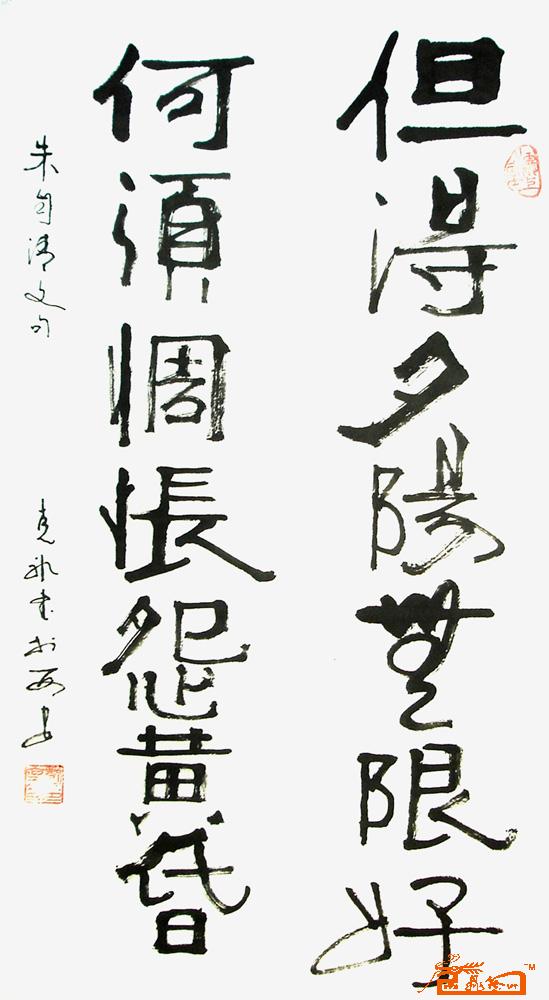 但得夕陽無限好
何須惆悵怨黄昏
朱自清文句
克 書於西安